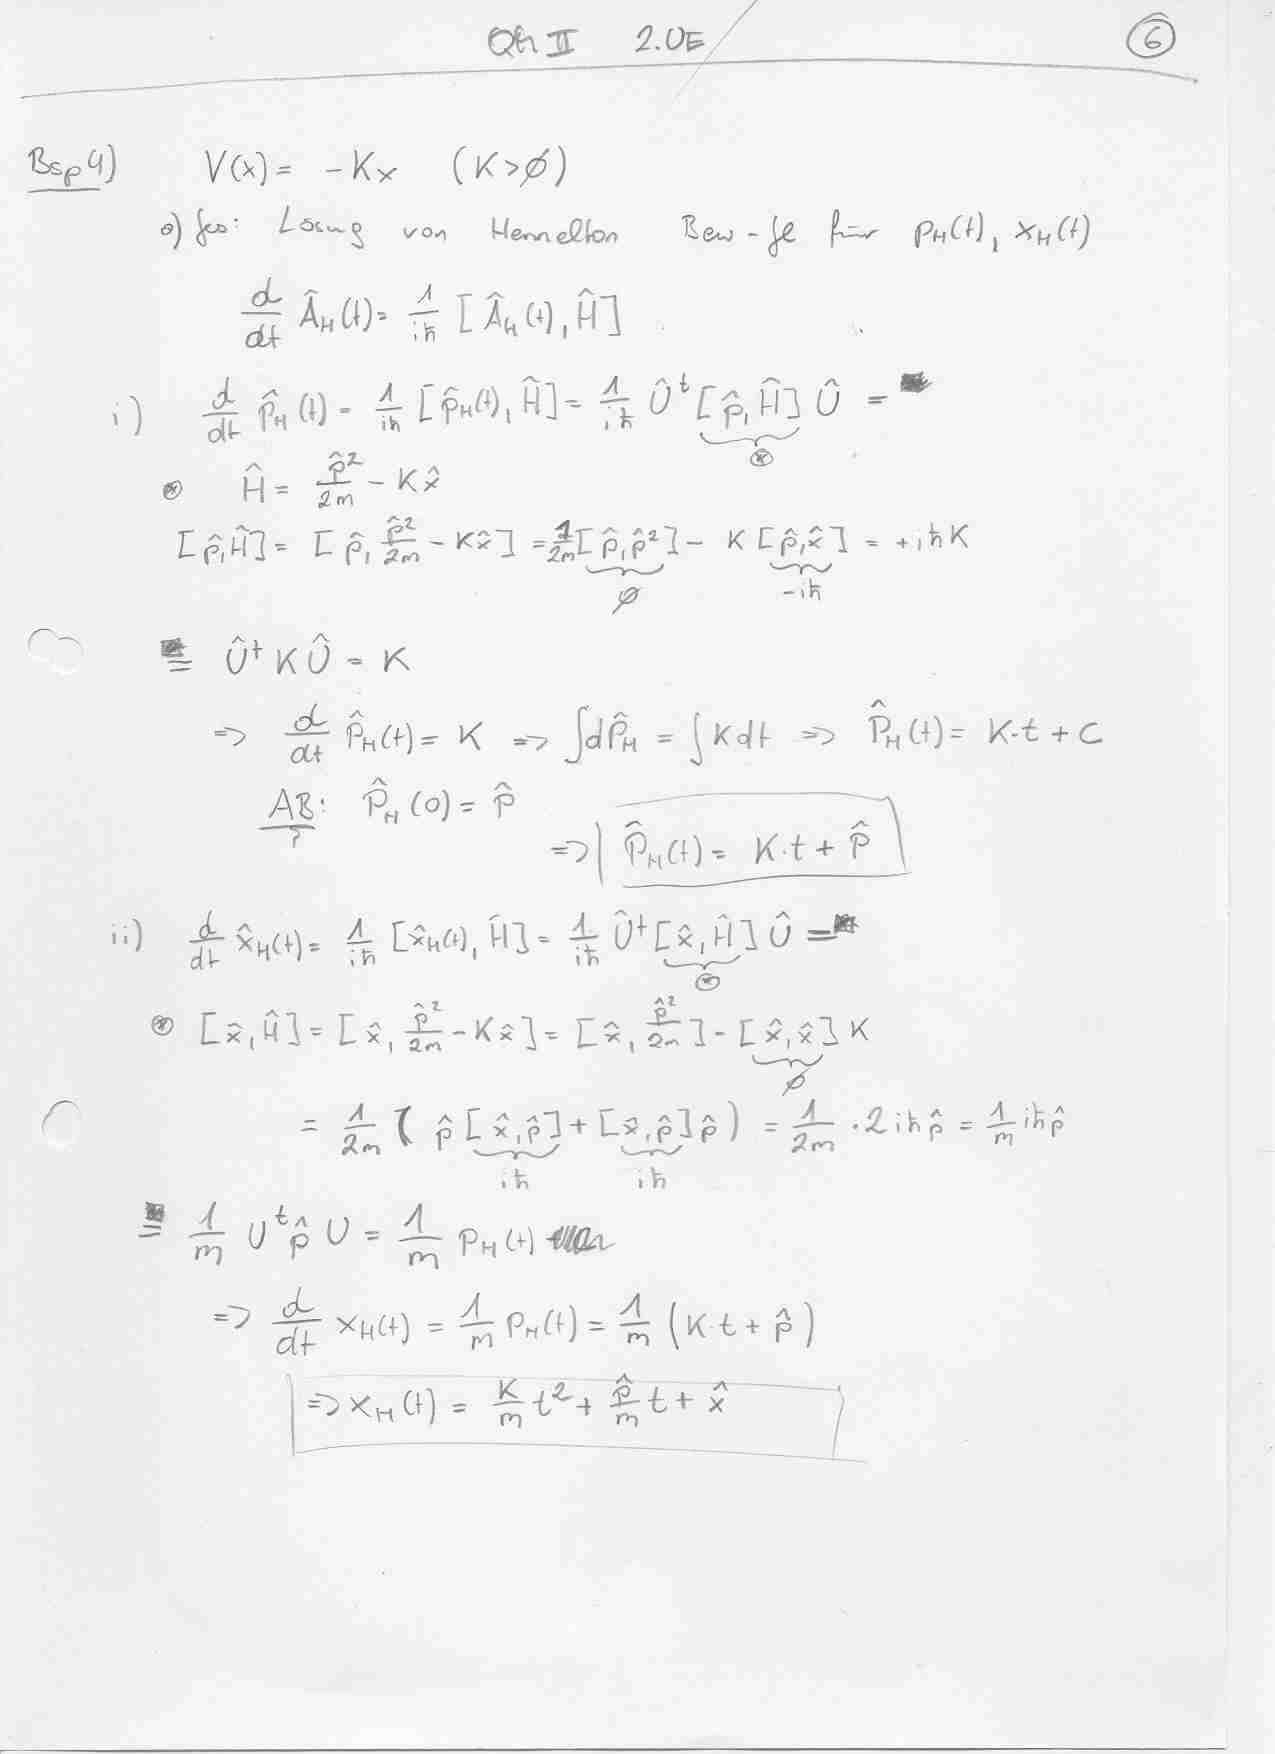 QM II 2.UE 6
Bsp 4) V(x) = -Kx (K>∅)
a) ges: Lösung von Bew-gl für p_H(t), x_H(t)
d/dt Â_H(t) = 1/iħ [Â_H(t), Ĥ]
i) d/dt p̂_H(t) = 1/iħ [p̂_H(t), Ĥ] = 1/iħ Û† [p̂, Ĥ] Û =
⊛
⊛ Ĥ = p̂²/2m - Kx̂
[p̂, Ĥ] = [p̂, p̂²/2m - Kx̂] = 1/2m [p̂, p̂²] - K [p̂, x̂] = +iħK
∅ -iħ
= Û† K Û = K
=> d/dt p̂_H(t) = K => ∫dp̂_H = ∫K dt => p̂_H(t) = K·t + C
AB: p̂_H(0) = p̂
=> p̂_H(t) = K·t + p̂
ii) d/dt x̂_H(t) = 1/iħ [x̂_H(t), Ĥ] = 1/iħ Û† [x̂, Ĥ] Û =
⊛
⊛ [x̂, Ĥ] = [x̂, p̂²/2m - Kx̂] = [x̂, p̂²/2m] - [x̂, x̂] K
∅
= 1/2m ( p̂ [x̂, p̂] + [x̂, p̂] p̂ ) = 1/2m · 2iħp̂ = 1/m iħp̂
iħ iħ
= 1/m U† p̂ U = 1/m p_H(t)
=> d/dt x_H(t) = 1/m p_H(t) = 1/m (K·t + p̂)
=> x_H(t) = K/m t² + p̂/m t + x̂